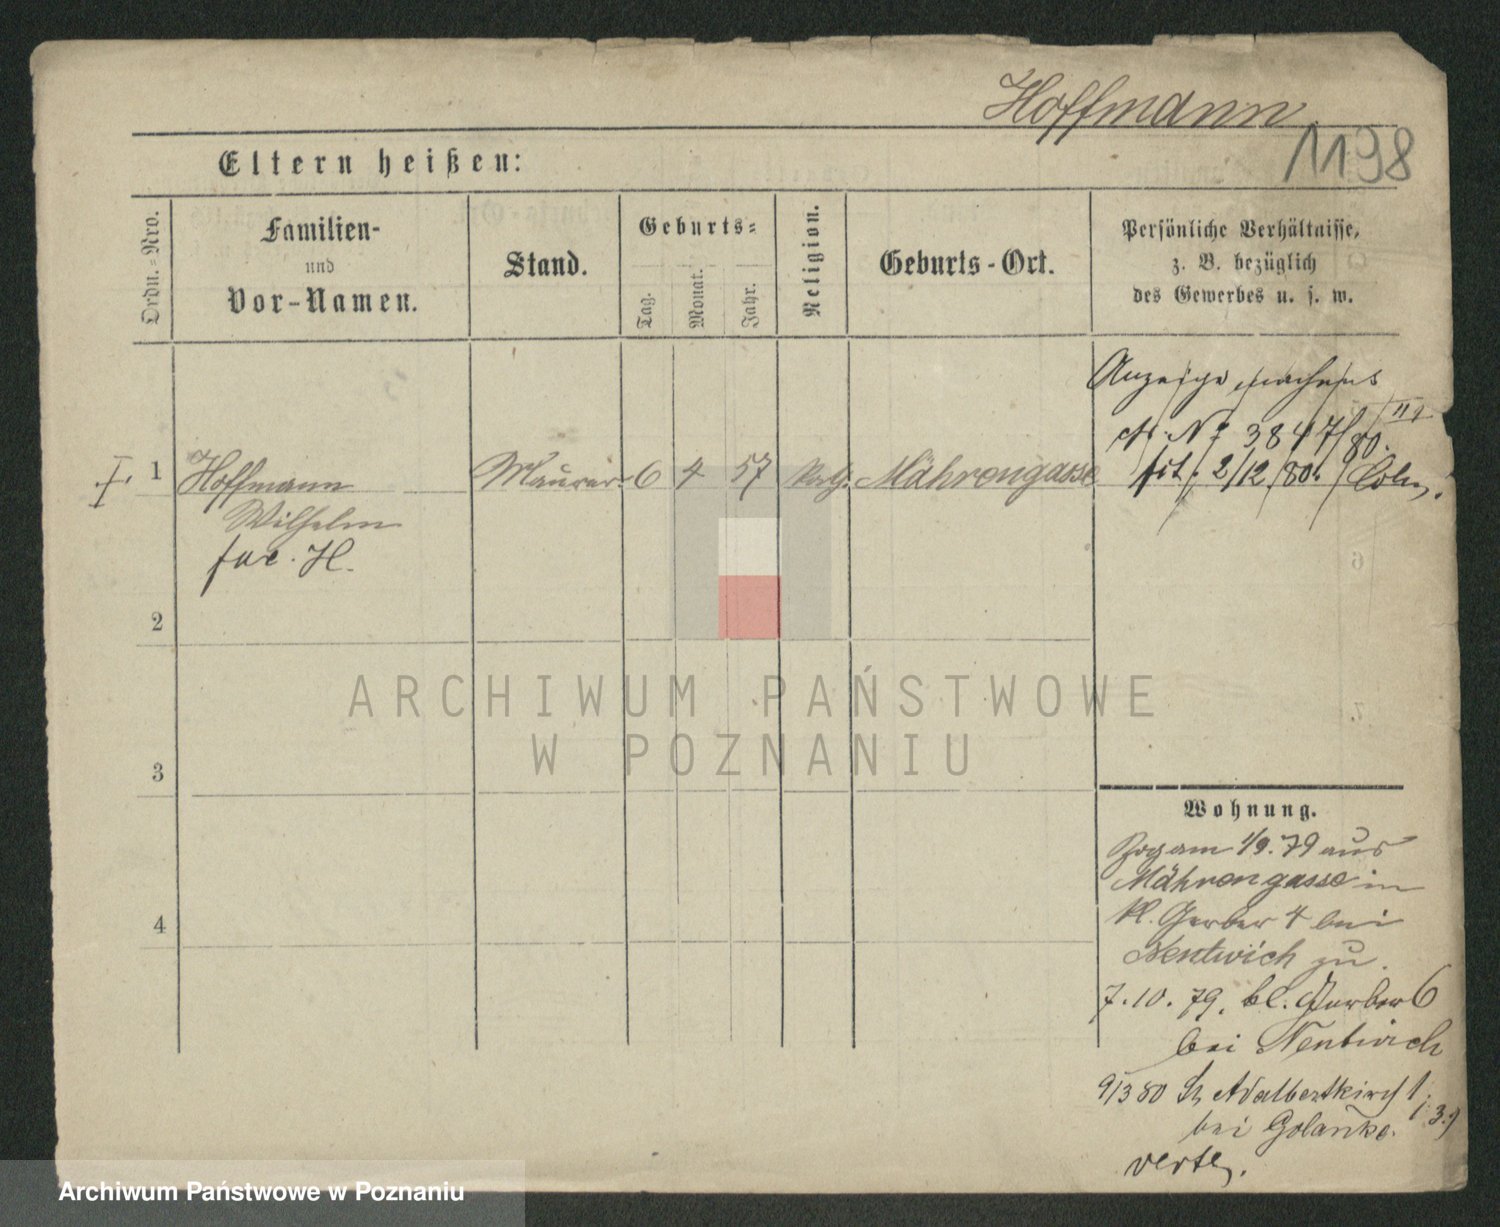 Hoffmann
1198
Eltern heißen:
Ordn.=Nro.
Familien-
und
Vor-Namen.
Stand.
Geburts=
Tag.
Monat.
Jahr.
Religion.
Geburts-Ort.
Persönliche Verhältnisse,
z. B. bezüglich
des Gewerbes u. s. w.
3847/80.
2/12.80.
1 Hoffmann Maurer 6 4 57 Mährengasse
Wilhelm
2
3
4
ARCHIWUM PAŃSTWOWE
W POZNANIU
Wohnung.
Zog am 1/9.79 aus
Mährengasse in
kl. Gerber 4 bei
Nentwich zu.
7.10.79. kl. Gerber 6
bei Nentwich
9/3 80 St Adalbertkirch 1
bei
verte.
Archiwum Państwowe w Poznaniu